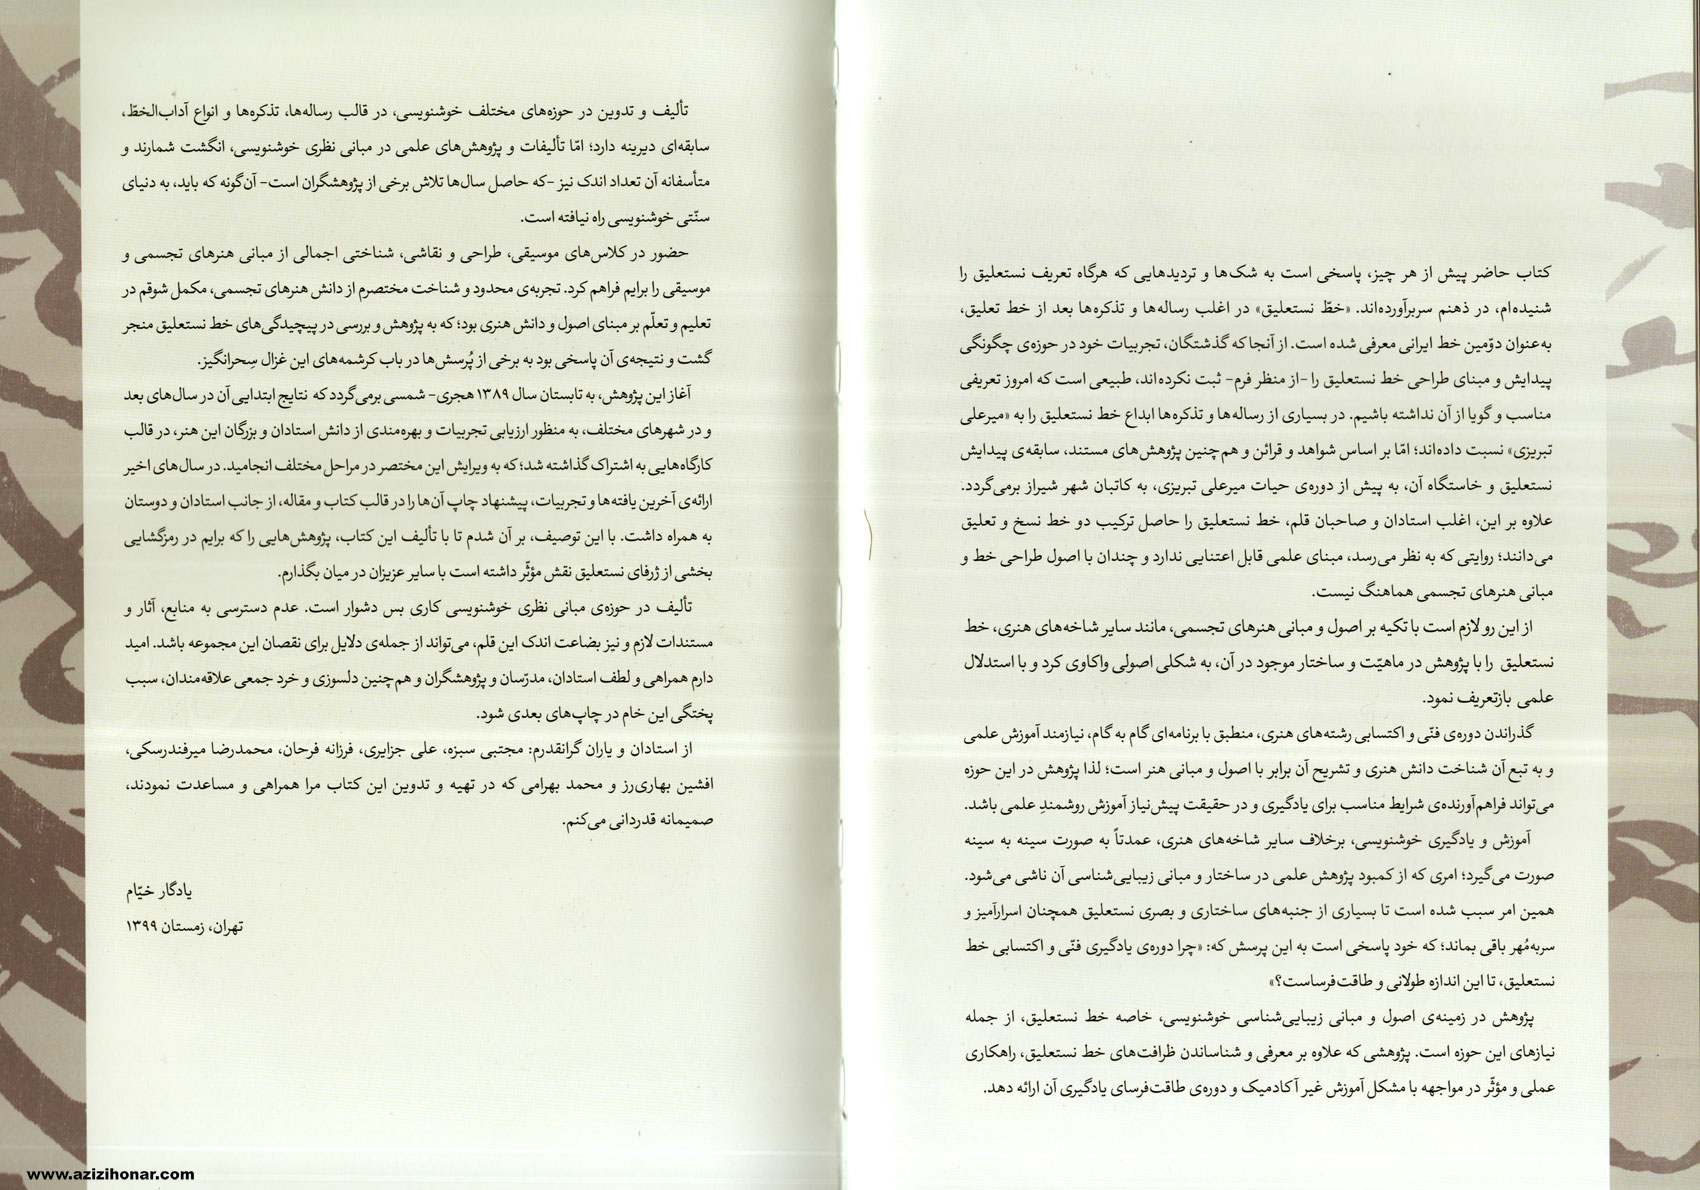 کتاب حاضر پیش از هر چیز، پاسخی است به شک‌ها و تردیدهایی که هرگاه تعریف نستعلیق را
شنیده‌ام، در ذهنم سربرآورده‌اند. «خطّ نستعلیق» در اغلب رساله‌ها و تذکره‌ها بعد از خط تعلیق،
به‌عنوان دوّمین خط ایرانی معرفی شده است. از آنجا که گذشتگان، تجربیات خود در حوزه‌ی چگونگی
پیدایش و مبنای طراحی خط نستعلیق را -از منظر فرم- ثبت نکرده‌اند، طبیعی است که امروز تعریفی
مناسب و گویا از آن نداشته باشیم. در بسیاری از رساله‌ها و تذکره‌ها ابداع خط نستعلیق را به «میرعلی
تبریزی» نسبت داده‌اند؛ امّا بر اساس شواهد و قرائن و هم‌چنین پژوهش‌های مستند، سابقه‌ی پیدایش
نستعلیق و خاستگاه آن، به پیش از دوره‌ی حیات میرعلی تبریزی، به کاتبان شهر شیراز برمی‌گردد.
علاوه بر این، اغلب استادان و صاحبان قلم، خط نستعلیق را حاصل ترکیب دو خط نسخ و تعلیق
می‌دانند؛ روایتی که به نظر می‌رسد، مبنای علمی قابل اعتنایی ندارد و چندان با اصول طراحی خط و
مبانی هنرهای تجسمی هماهنگ نیست.
از این رو لازم است با تکیه بر اصول و مبانی هنرهای تجسمی، مانند سایر شاخه‌های هنری، خط
نستعلیق را با پژوهش در ماهیّت و ساختار موجود در آن، به شکلی اصولی واکاوی کرد و با استدلال
علمی بازتعریف نمود.
گذراندن دوره‌ی فنّی و اکتسابی رشته‌های هنری، منطبق با برنامه‌ای گام به گام، نیازمند آموزش علمی
و به تبع آن شناخت دانش هنری و تشریح آن برابر با اصول و مبانی هنر است؛ لذا پژوهش در این حوزه
می‌تواند فراهم‌آورنده‌ی شرایط مناسب برای یادگیری و در حقیقت پیش‌نیاز آموزش روشمندِ علمی باشد.
آموزش و یادگیری خوشنویسی، برخلاف سایر شاخه‌های هنری، عمدتاً به صورت سینه به سینه
صورت می‌گیرد؛ امری که از کمبود پژوهش علمی در ساختار و مبانی زیبایی‌شناسی آن ناشی می‌شود.
همین امر سبب شده است تا بسیاری از جنبه‌های ساختاری و بصری نستعلیق همچنان اسرارآمیز و
سربه‌مُهر باقی بماند؛ که خود پاسخی است به این پرسش که: «چرا دوره‌ی یادگیری فنّی و اکتسابی خط
نستعلیق، تا این اندازه طولانی و طاقت‌فرساست؟»
پژوهش در زمینه‌ی اصول و مبانی زیبایی‌شناسی خوشنویسی، خاصه خط نستعلیق، از جمله
نیازهای این حوزه است. پژوهشی که علاوه بر معرفی و شناساندن ظرافت‌های خط نستعلیق، راهکاری
عملی و مؤثّر در مواجهه با مشکل آموزش غیر آکادمیک و دوره‌ی طاقت‌فرسای یادگیری آن ارائه دهد.
تألیف و تدوین در حوزه‌های مختلف خوشنویسی، در قالب رساله‌ها، تذکره‌ها و انواع آداب‌الخطّ،
سابقه‌ای دیرینه دارد؛ امّا تألیفات و پژوهش‌های علمی در مبانی نظری خوشنویسی، انگشت شمارند و
متأسفانه آن تعداد اندک نیز -که حاصل سال‌ها تلاش برخی از پژوهشگران است- آن‌گونه که باید، به دنیای
سنّتی خوشنویسی راه نیافته است.
حضور در کلاس‌های موسیقی، طراحی و نقاشی، شناختی اجمالی از مبانی هنرهای تجسمی و
موسیقی را برایم فراهم کرد. تجربه‌ی محدود و شناخت مختصرم از دانش هنرهای تجسمی، مکمل شوقم در
تعلیم و تعلّم بر مبنای اصول و دانش هنری بود؛ که به پژوهش و بررسی در پیچیدگی‌های خط نستعلیق منجر
گشت و نتیجه‌ی آن پاسخی بود به برخی از پُرسش‌ها در باب کرشمه‌های این غزال سِحرانگیز.
آغاز این پژوهش، به تابستان سال ۱۳۸۹ هجری- شمسی برمی‌گردد که نتایج ابتدایی آن در سال‌های بعد
و در شهرهای مختلف، به منظور ارزیابی تجربیات و بهره‌مندی از دانش استادان و بزرگان این هنر، در قالب
کارگاه‌هایی به اشتراک گذاشته شد؛ که به ویرایش این مختصر در مراحل مختلف انجامید. در سال‌های اخیر
ارائه‌ی آخرین یافته‌ها و تجربیات، پیشنهاد چاپ آن‌ها را در قالب کتاب و مقاله، از جانب استادان و دوستان
به همراه داشت. با این توصیف، بر آن شدم تا با تألیف این کتاب، پژوهش‌هایی را که برایم در رمزگشایی
بخشی از ژرفای نستعلیق نقش مؤثّر داشته است با سایر عزیزان در میان بگذارم.
تألیف در حوزه‌ی مبانی نظری خوشنویسی کاری بس دشوار است. عدم دسترسی به منابع، آثار و
مستندات لازم و نیز بضاعت اندک این قلم، می‌تواند از جمله‌ی دلایل برای نقصان این مجموعه باشد. امید
دارم همراهی و لطف استادان، مدرّسان و پژوهشگران و هم‌چنین دلسوزی و خرد جمعی علاقه‌مندان، سبب
پختگی این خام در چاپ‌های بعدی شود.
از استادان و یاران گرانقدرم: مجتبی سبزه، علی جزایری، فرزانه فرحان، محمدرضا میرفندرسکی،
افشین بهاری‌رز و محمد بهرامی که در تهیه و تدوین این کتاب مرا همراهی و مساعدت نمودند،
صمیمانه قدردانی می‌کنم.
یادگار خیّام
تهران، زمستان ۱۳۹۹
www.azizihonar.com